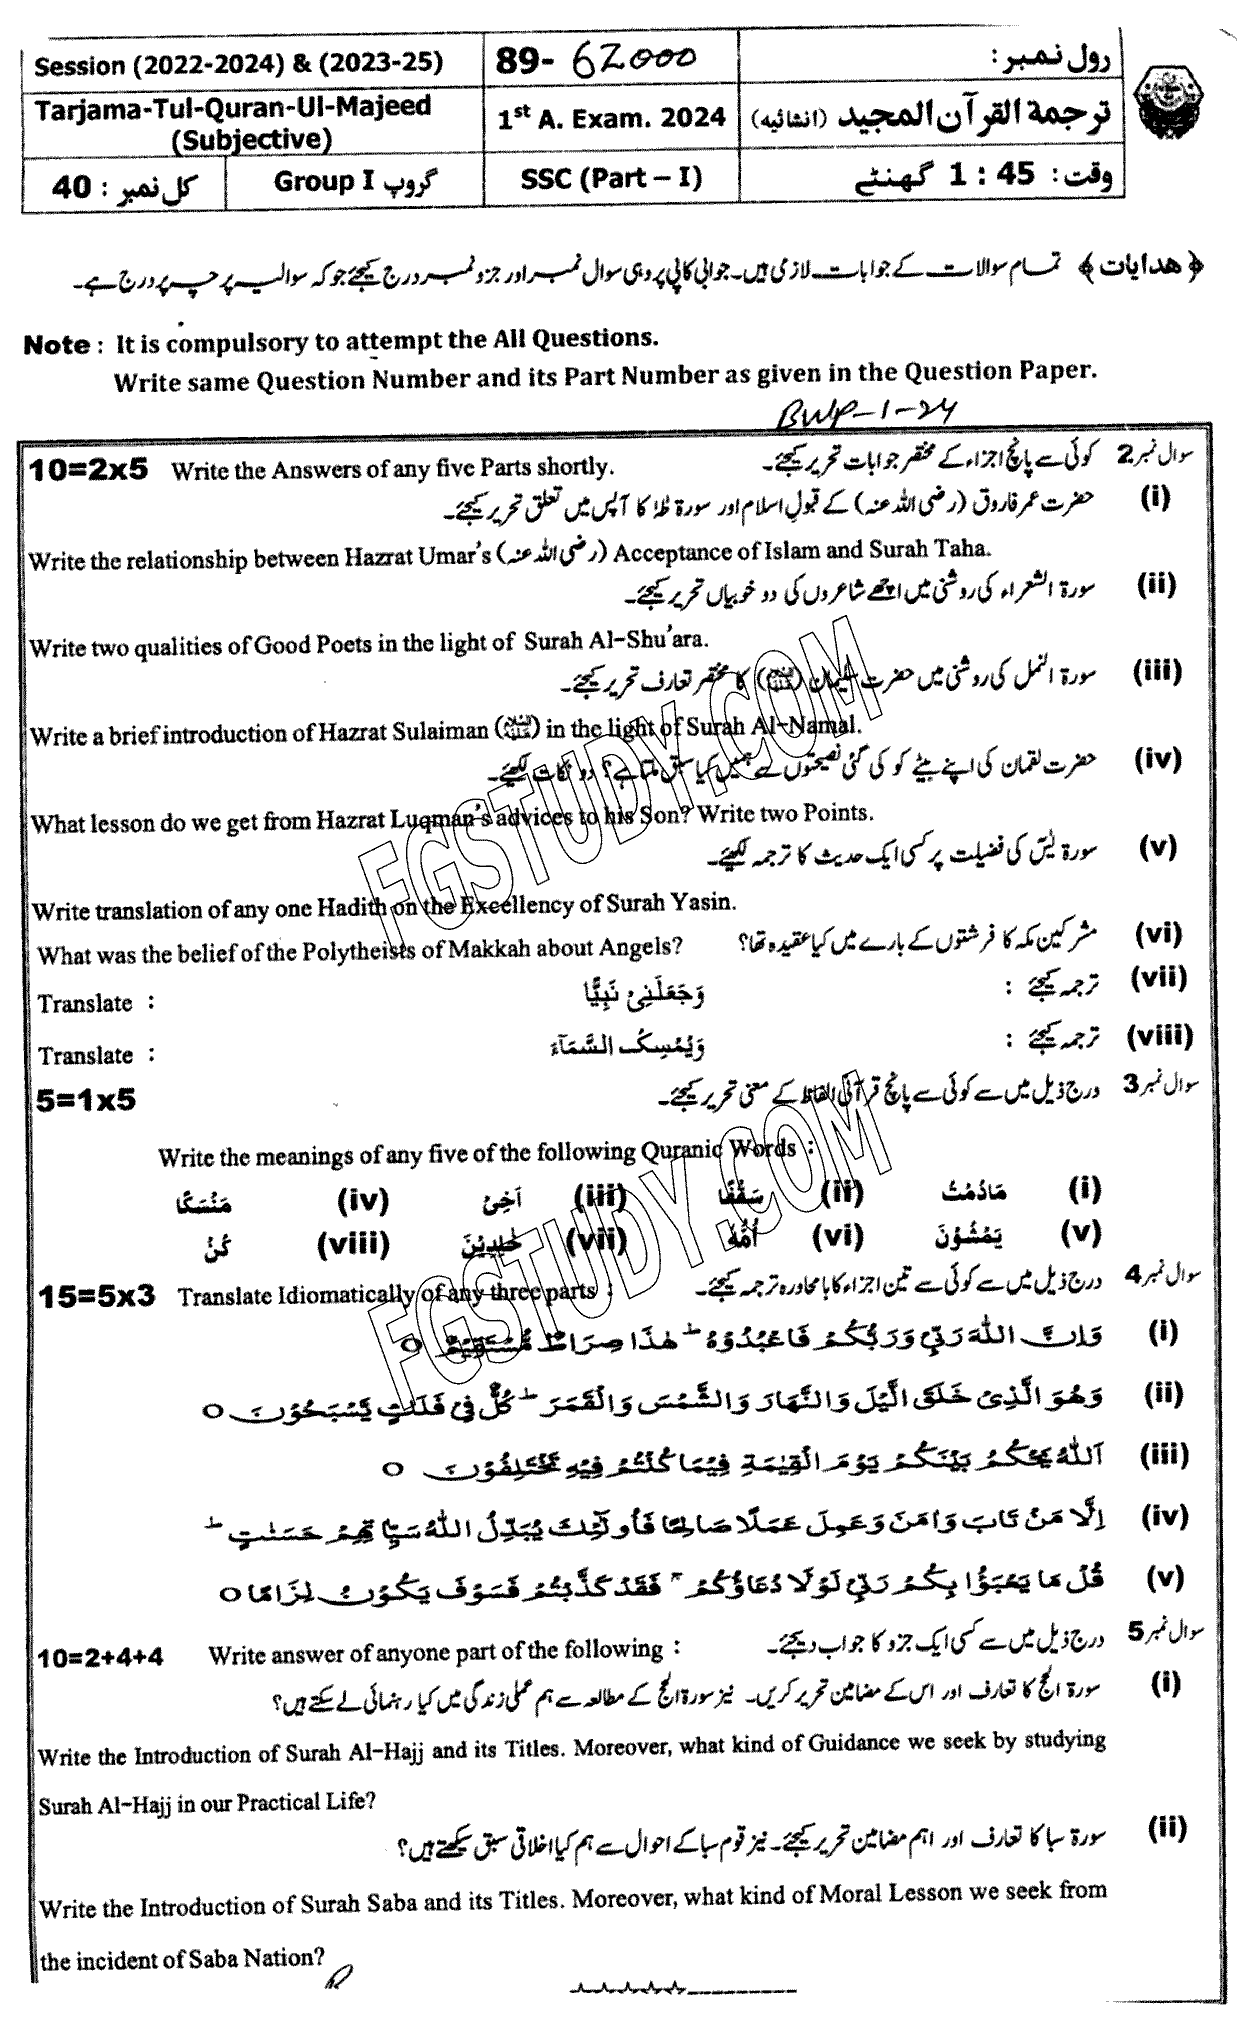 Session (2022-2024) & (2023-25)
89- 62000
رول نمبر:
Tarjama-Tul-Quran-Ul-Majeed
(Subjective)
1st A. Exam. 2024
ترجمۃ القرآن المجید (انشائیہ)
کل نمبر : 40
Group I گروپ
SSC (Part – I)
وقت: 1 : 45 گھنٹے
﴿ ھدایات ﴾ تمام سوالات کے جوابات لازمی ہیں۔ جوابی کاپی پر وہی سوال نمبر اور جزو نمبر درج کیجئے جو کہ سوالیہ پرچہ پر درج ہے۔
Note : It is compulsory to attempt the All Questions.
Write same Question Number and its Part Number as given in the Question Paper.
BWP-1-24
سوال نمبر 2 کوئی سے پانچ اجزاء کے مختصر جوابات تحریر کیجئے۔
10=2x5 Write the Answers of any five Parts shortly.
(i) حضرت عمر فاروق (رضی اللہ عنہ) کے قبولِ اسلام اور سورۃ طٰہٰ کا آپس میں تعلق تحریر کیجئے۔
Write the relationship between Hazrat Umar's (رضی اللہ عنہ) Acceptance of Islam and Surah Taha.
(ii) سورۃ الشعراء کی روشنی میں اچھے شاعروں کی دو خوبیاں تحریر کیجئے۔
Write two qualities of Good Poets in the light of Surah Al-Shu'ara.
(iii) سورۃ النمل کی روشنی میں حضرت سلیمان (علیہ السلام) کا مختصر تعارف تحریر کیجئے۔
Write a brief introduction of Hazrat Sulaiman (علیہ السلام) in the light of Surah Al-Namal.
(iv) حضرت لقمان کی اپنے بیٹے کو کی گئی نصیحتوں سے ہمیں کیا سبق ملتا ہے؟ دو نکات لکھئے۔
What lesson do we get from Hazrat Luqman's advices to his Son? Write two Points.
(v) سورۃ یٰسٓ کی فضیلت پر کسی ایک حدیث کا ترجمہ لکھئے۔
Write translation of any one Hadith on the Excellency of Surah Yasin.
(vi) مشرکین مکہ کا فرشتوں کے بارے میں کیا عقیدہ تھا؟
What was the belief of the Polytheists of Makkah about Angels?
(vii) ترجمہ کیجئے : وَجَعَلَنِیْ نَبِیًّا
Translate :
(viii) ترجمہ کیجئے : وَیُمْسِکُ السَّمَآءَ
Translate :
سوال نمبر 3 درج ذیل میں سے کوئی سے پانچ قرآنی الفاظ کے معنی تحریر کیجئے۔
5=1x5
Write the meanings of any five of the following Quranic Words :
(i) مَادُمْتُ (ii) سَقْفًا (iii) اَخِیْ (iv) مَنْسَکًا
(v) یَمْشُوْنَ (vi) اُمُّهٗ (vii) خٰلِدِیْنَ (viii) کُنْ
سوال نمبر 4 درج ذیل میں سے کوئی سے تین اجزاء کا با محاورہ ترجمہ کیجئے۔
15=5x3 Translate Idiomatically of any three parts :
(i) وَاِنَّ اللّٰهَ رَبِّیْ وَرَبُّکُمْ فَاعْبُدُوْهُ ؕ هٰذَا صِرَاطٌ مُّسْتَقِیْمٌ ○
(ii) وَهُوَ الَّذِیْ خَلَقَ الَّیْلَ وَالنَّهَارَ وَالشَّمْسَ وَالْقَمَرَ ؕ کُلٌّ فِیْ فَلَکٍ یَّسْبَحُوْنَ ○
(iii) اَللّٰهُ یَحْکُمُ بَیْنَکُمْ یَوْمَ الْقِیٰمَةِ فِیْمَا کُنْتُمْ فِیْهِ تَخْتَلِفُوْنَ ○
(iv) اِلَّا مَنْ تَابَ وَاٰمَنَ وَعَمِلَ عَمَلًا صَالِحًا فَاُولٰٓئِکَ یُبَدِّلُ اللّٰهُ سَیِّاٰتِهِمْ حَسَنٰتٍ ؕ
(v) قُلْ مَا یَعْبَؤُا بِکُمْ رَبِّیْ لَوْلَا دُعَاؤُکُمْ ۚ فَقَدْ کَذَّبْتُمْ فَسَوْفَ یَکُوْنُ لِزَامًا ○
سوال نمبر 5 درج ذیل میں سے کسی ایک جزو کا جواب دیجئے۔
10=2+4+4 Write answer of anyone part of the following :
(i) سورۃ الحج کا تعارف اور اس کے مضامین تحریر کریں۔ نیز سورۃ الحج کے مطالعہ سے ہم عملی زندگی میں کیا رہنمائی لے سکتے ہیں؟
Write the Introduction of Surah Al-Hajj and its Titles. Moreover, what kind of Guidance we seek by studying
Surah Al-Hajj in our Practical Life?
(ii) سورۃ سبا کا تعارف اور اہم مضامین تحریر کیجئے۔ نیز قوم سبا کے احوال سے ہم کیا اخلاقی سبق سیکھتے ہیں؟
Write the Introduction of Surah Saba and its Titles. Moreover, what kind of Moral Lesson we seek from
the incident of Saba Nation?
FGSTUDY.COM
FGSTUDY.COM